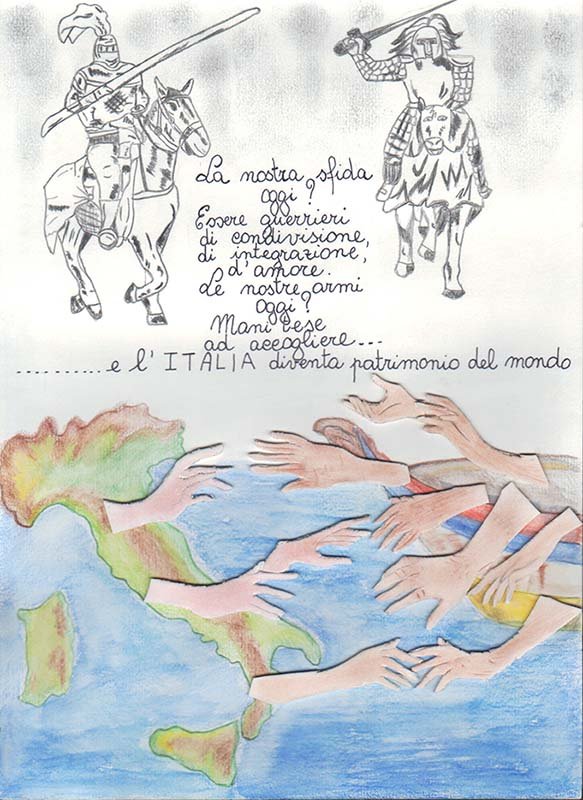 La nostra sfida
oggi?
Essere guerrieri
di condivisione,
di integrazione,
d'amore.
Le nostre armi
oggi?
Mani tese
ad accogliere...
...........e l'ITALIA diventa patrimonio del mondo